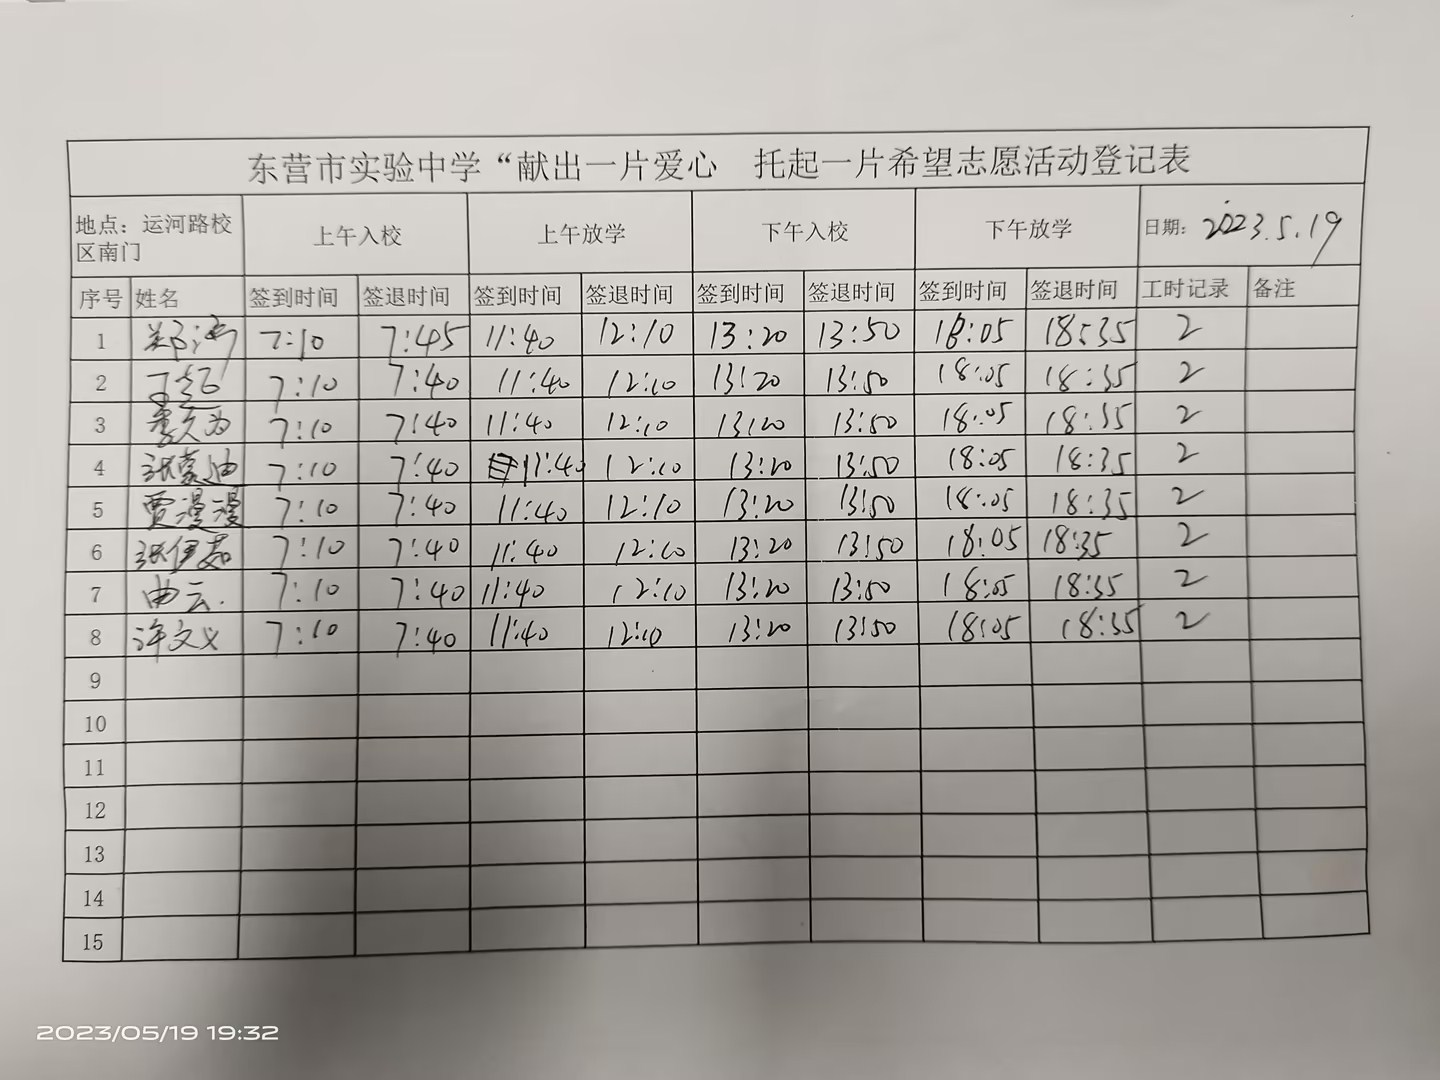 东营市实验中学“献出一片爱心 托起一片希望志愿活动登记表
地点：运河路校区南门 上午入校 上午放学 下午入校 下午放学 日期：2023.5.19
序号 姓名 签到时间 签退时间 签到时间 签退时间 签到时间 签退时间 签到时间 签退时间 工时记录 备注
1 7:10 7:45 11:40 12:10 13:20 13:50 18:05 18:35 2
2 7:10 7:40 11:40 12:10 13:20 13:50 18:05 18:35 2
3 7:10 7:40 11:40 12:10 13:20 13:50 18:05 18:35 2
4 张蒙迪 7:10 7:40 11:40 12:10 13:20 13:50 18:05 18:35 2
5 贾漫漫 7:10 7:40 11:40 12:10 13:20 13:50 18:05 18:35 2
6 张伊茹 7:10 7:40 11:40 12:10 13:20 13:50 18:05 18:35 2
7 曲云 7:10 7:40 11:40 12:10 13:20 13:50 18:05 18:35 2
8 许文义 7:10 7:40 11:40 12:10 13:20 13:50 18:05 18:35 2
9
10
11
12
13
14
15
2023/05/19 19:32